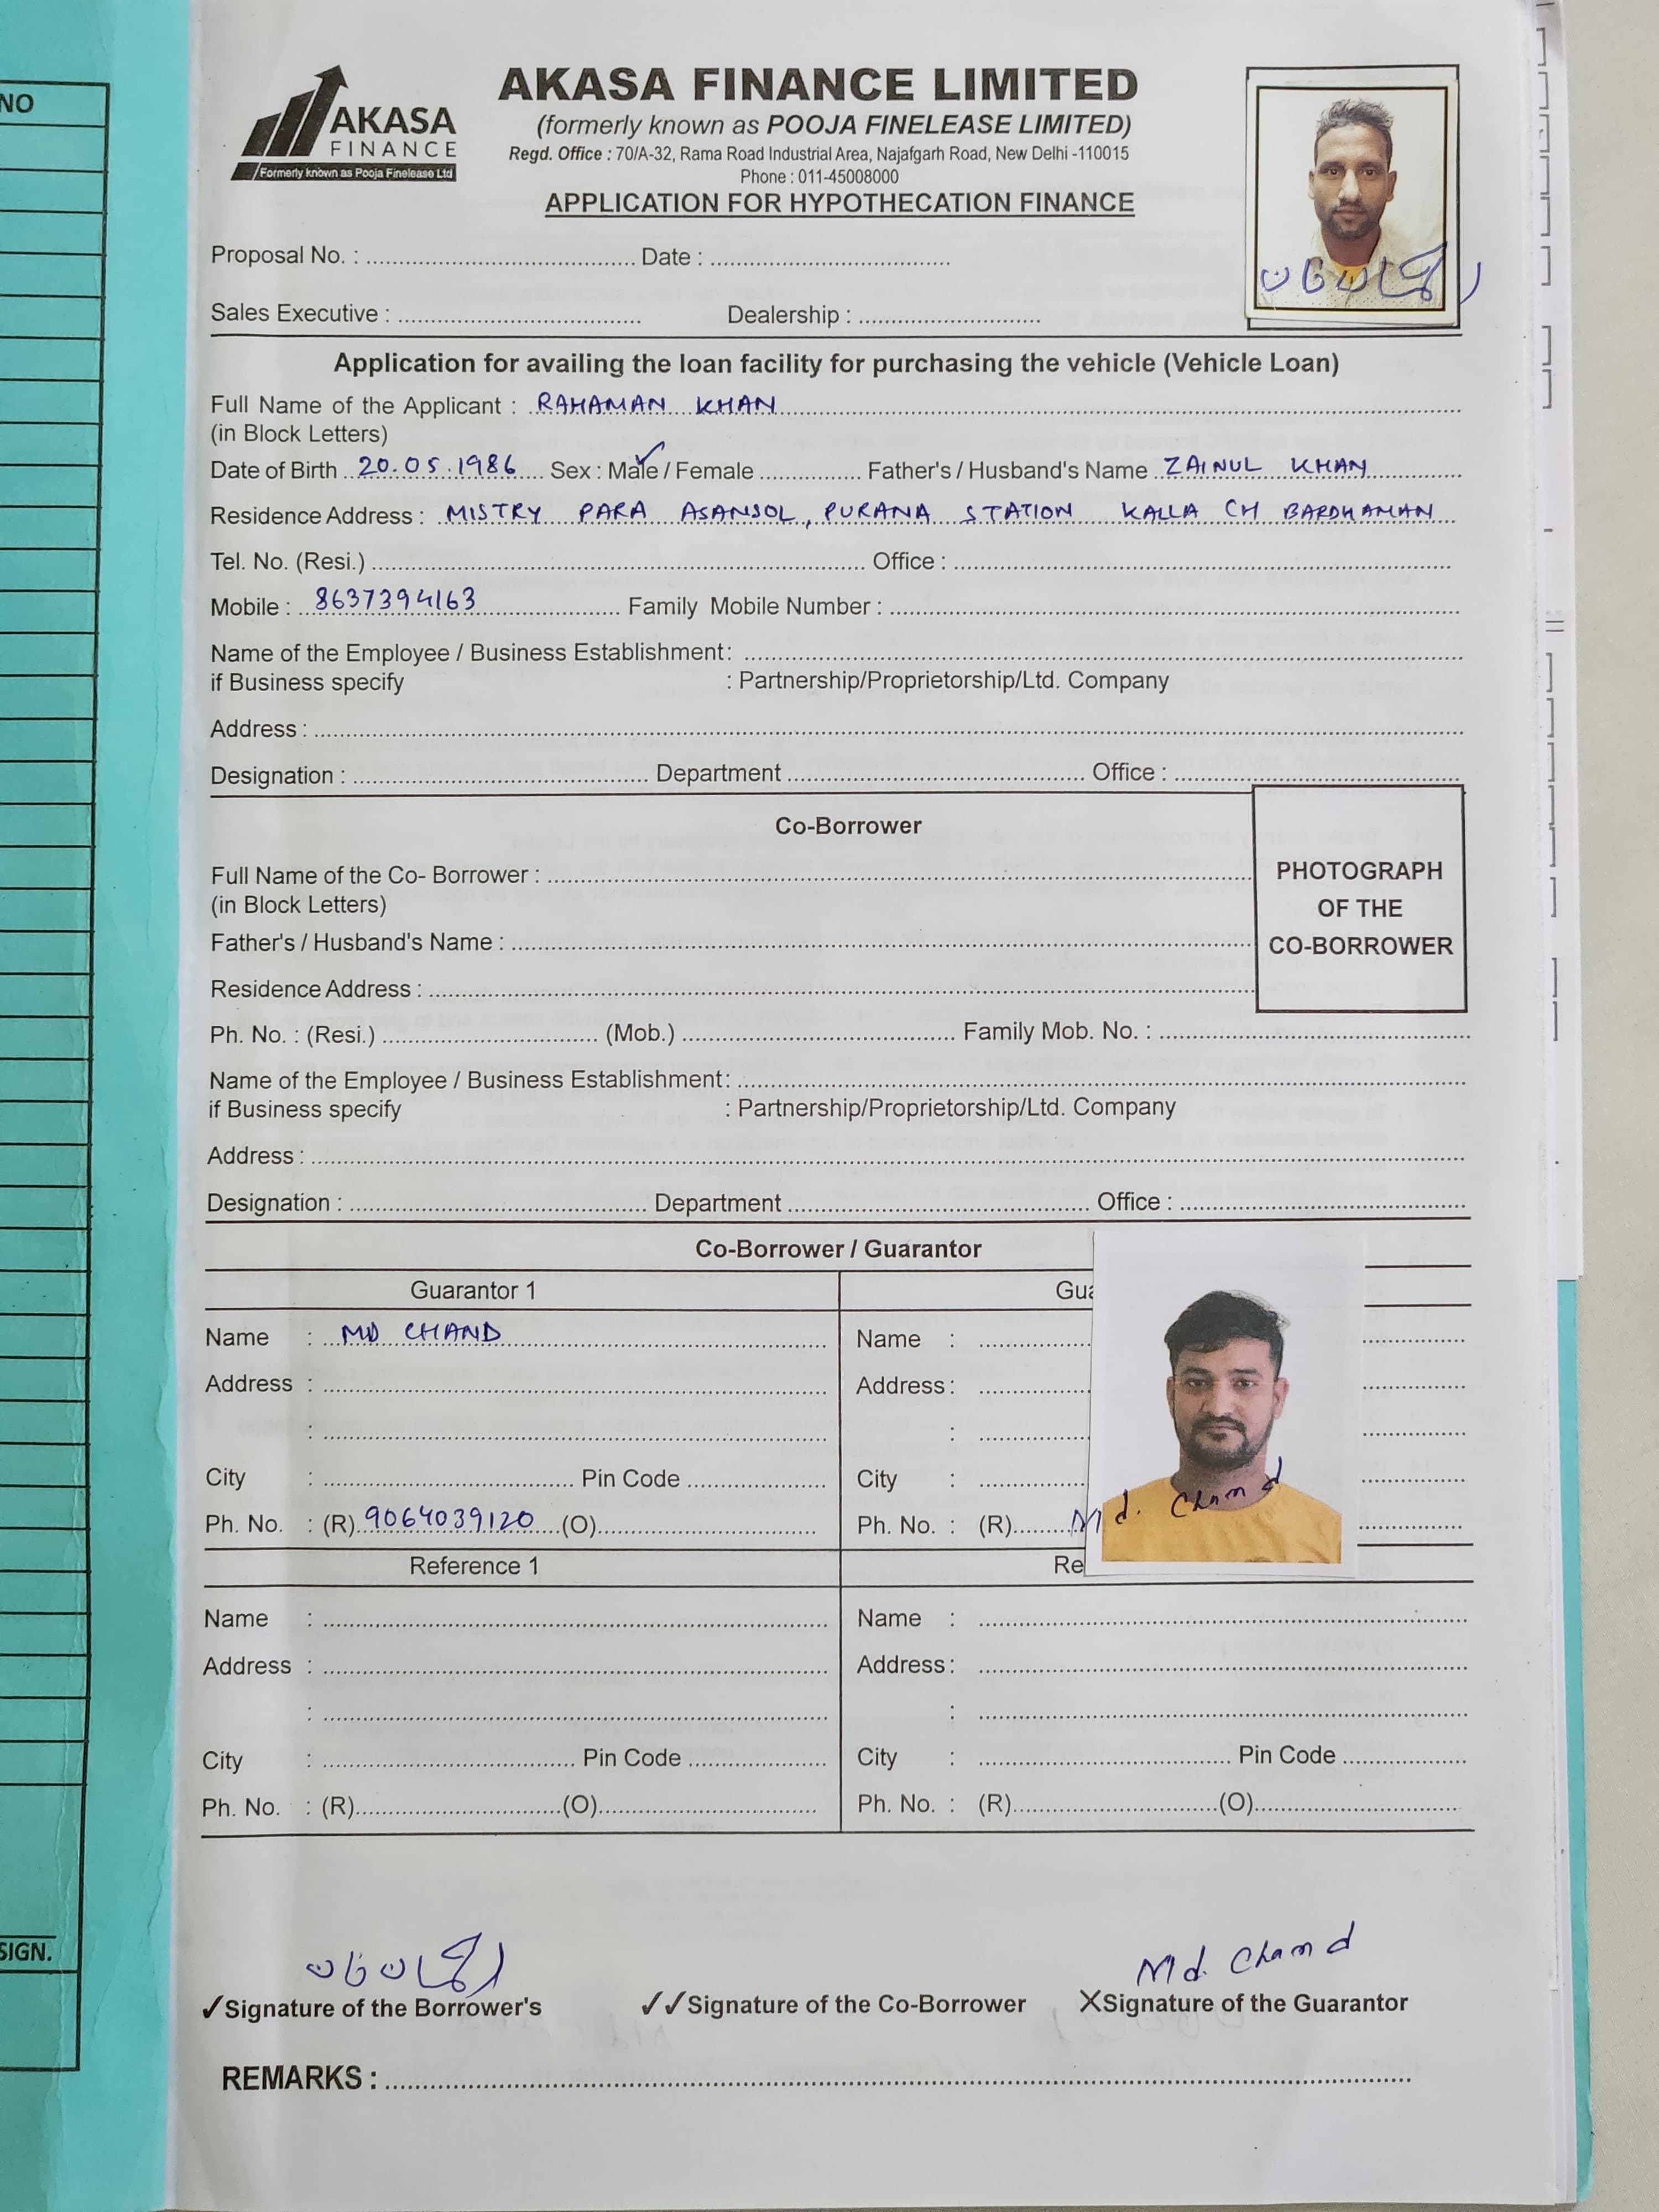 NO
SIGN.
AKASA
FINANCE
Formerly known as Pooja Finelease Ltd
AKASA FINANCE LIMITED
(formerly known as POOJA FINELEASE LIMITED)
Regd. Office : 70/A-32, Rama Road Industrial Area, Najafgarh Road, New Delhi -110015
Phone : 011-45008000
APPLICATION FOR HYPOTHECATION FINANCE
Proposal No. : Date :
Sales Executive : Dealership :
Application for availing the loan facility for purchasing the vehicle (Vehicle Loan)
Full Name of the Applicant : RAHAMAN KHAN
(in Block Letters)
Date of Birth 20.05.1986 Sex : Male / Female Father's / Husband's Name ZAINUL KHAN
Residence Address : MISTRY PARA ASANSOL, PURANA STATION KALLA CH BARDHAMAN
Tel. No. (Resi.) Office :
Mobile : 8637394163 Family Mobile Number :
Name of the Employee / Business Establishment:
if Business specify : Partnership/Proprietorship/Ltd. Company
Address :
Designation : Department Office :
Co-Borrower
PHOTOGRAPH
OF THE
CO-BORROWER
Full Name of the Co- Borrower :
(in Block Letters)
Father's / Husband's Name :
Residence Address :
Ph. No. : (Resi.) (Mob.) Family Mob. No. :
Name of the Employee / Business Establishment:
if Business specify : Partnership/Proprietorship/Ltd. Company
Address :
Designation : Department Office :
Co-Borrower / Guarantor
Guarantor 1 Gua
Name : MD CHAND Name :
Address : Address :
: :
City : Pin Code City :
Ph. No. : (R) 9064039120 (O) Ph. No. : (R) Md. Chand
Reference 1 Re
Name : Name :
Address : Address :
: :
City : Pin Code City : Pin Code
Ph. No. : (R) (O) Ph. No. : (R) (O)
Md. Chand
✓Signature of the Borrower's ✓✓Signature of the Co-Borrower XSignature of the Guarantor
REMARKS :